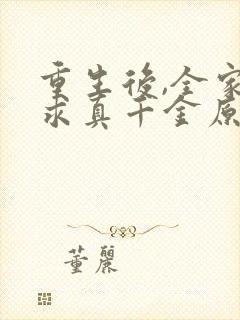 重生後,全家
求真千金原
董麗